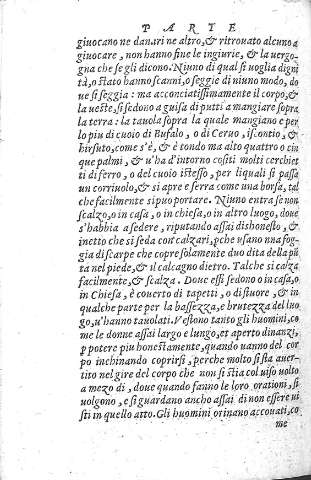 PARTE
giuocano ne danari ne altro, & ritrouato alcuno a
giuocare, non hanno fine le ingiurie, & la uergo-
gna che se gli dicono. Niuno di qual si uoglia digni
tà, o stato hanno scanni, o seggie di niuno modo, do
ue si seggia: ma acconciatissimamente il corpo, &
la ueste, si sedono a guisa di putti a mangiare sopra
la terra: la tauola sopra la quale mangiano e per
lo piu di cuoio di Bufalo, o di Ceruo, iscontio, &
hirsuto, come s'è, & è tondo ma alto quattro o cin
que palmi, & u'ha d'intorno cositi molti cerchiet
ti di ferro, o del cuoio istesso, per liquali si passa
un corriuolo, & si apre e serra come una borsa, tal
che facilmente si puo portare. Niuno entra se non
scalzo, o in casa, o in chiesa, o in altro luogo, doue
s'habbia a sedere, riputando assai dishonesto, &
inetto che si seda con calzari, pche usano una fog-
gia di scarpe che copre solamente duo dita della pũ
ta nel piede, & il calcagno dietro. Talche si calza
facilmente, & scalza. Doue essi sedono o in casa, o
in Chiesa, è couerto di tapetti, o di stuore, & in
qualche parte per la bassezza, e brutezza del luo
go, u'hanno tauolati. Vestono tanto gli huomini, co
me le donne assai largo e lungo, et aperto dinanzi,
p potere piu honestamente, quando uanno del cor
po inchinando coprirsi, perche molto si sta auer-
tito nel gire del corpo che non si stia col uiso uolto
a mezo di, doue quando fanno le loro orationi, si
uolgono, e si guardano ancho assai di non essere ui
sti in quello atto. Gli huomini orinano accouati, co
me